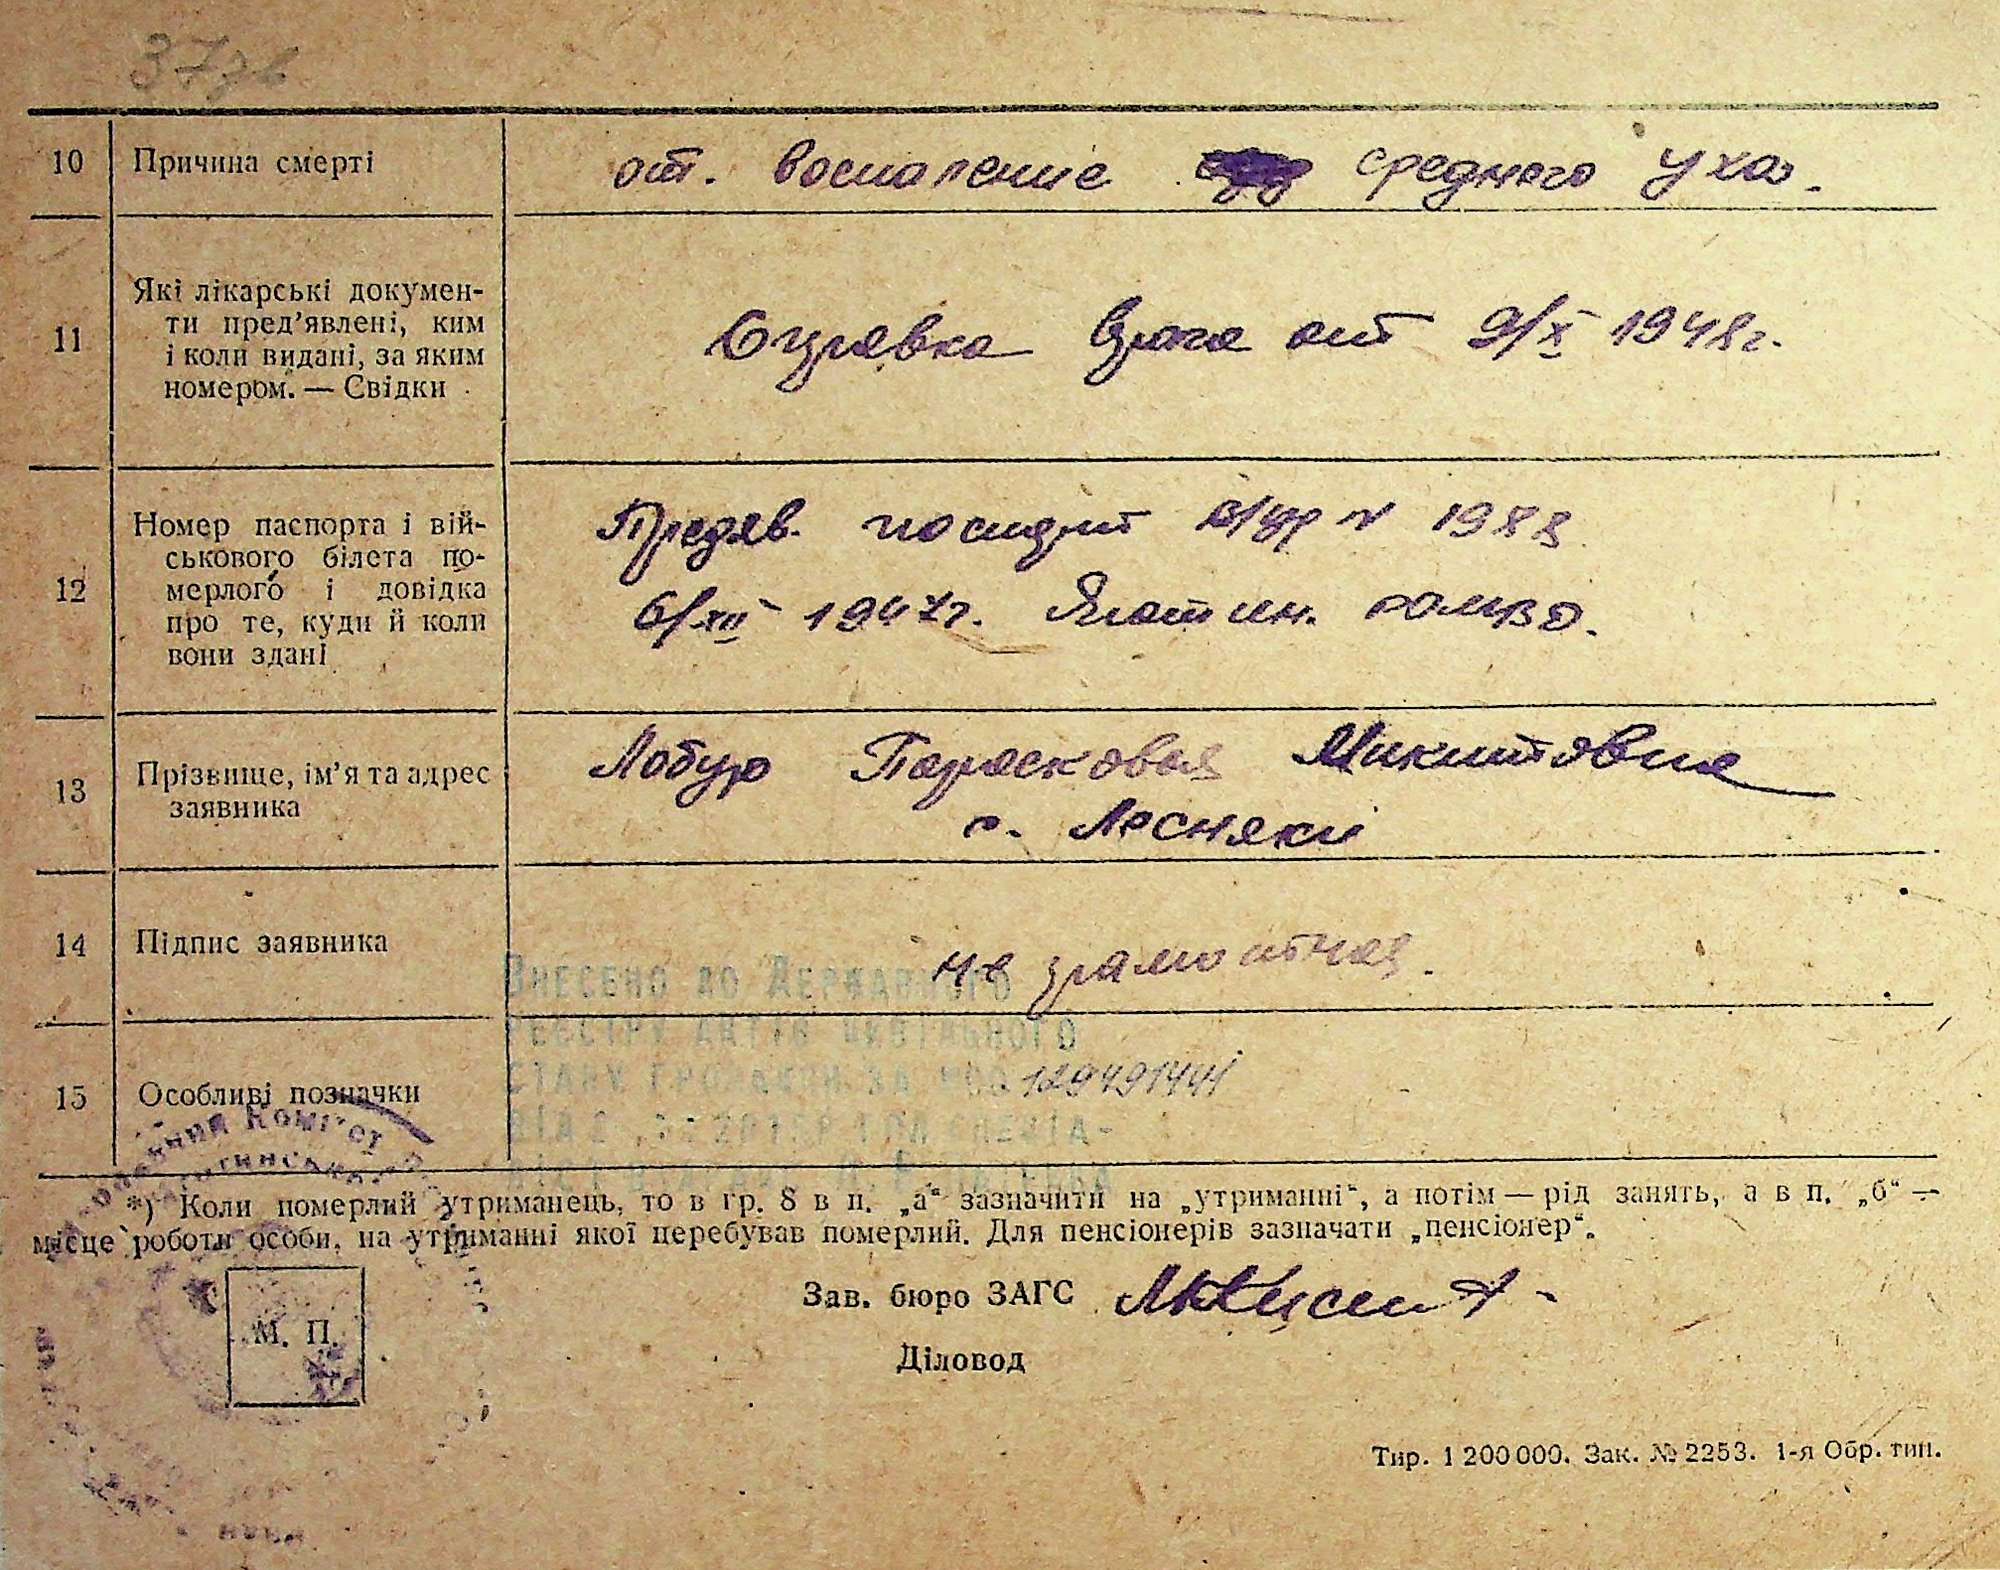 10 Причина смерті от. воспаление среднего уха.
11 Які лікарські докумен-
ти пред’явлені, ким
і коли видані, за яким
номером. — Свідки
Справка врача от 9/X 1948г.
12 Номер паспорта і вій-
ськового білета по-
мерлого і довідка
про те, куди й коли
вони здані
Предяв. 1988
6/XII 1947г. Яготин.
13 Прізвище, ім’я та адрес
заявника
Лобур Парасковья Микитовна
с. Лесняки
14 Підпис заявника не грамотная.
Внесено до Державного
реєстру актів цивільного
стану про за 129491441
15 Особливі позначки
*) Коли померлий утриманець, то в гр. 8 в п. „а“ зазначити на „утриманні“, а потім — рід занять, а в п. „б“ —
місце роботи особи, на утриманні якої перебував померлий. Для пенсіонерів зазначати „пенсіонер“.
Зав. бюро ЗАГС
М. П.
Діловод
Тир. 1 200 000. Зак. № 2253. 1-я Обр. тип.